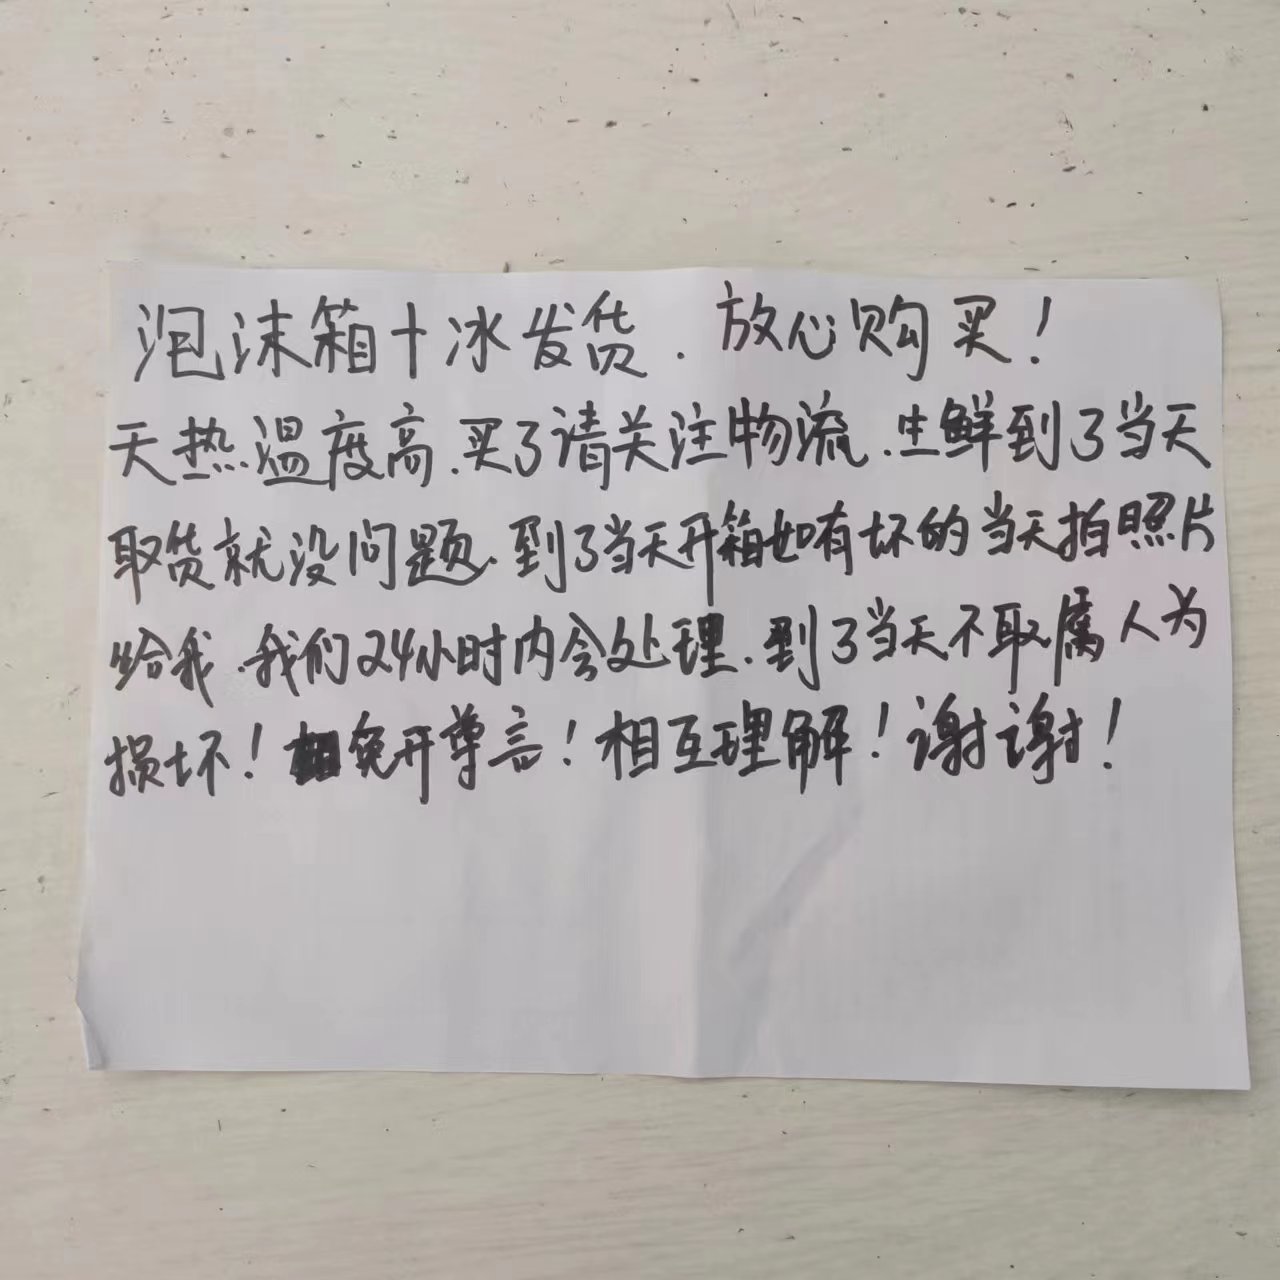 泡沫箱+冰发货.放心购买!
天热温度高.买了请关注物流.生鲜到了当天
取货就没问题.到了当天开箱如有坏的当天拍照片
给我.我们24小时内会处理.到了当天不取属人为
损坏!免开尊言!相互理解!谢谢!